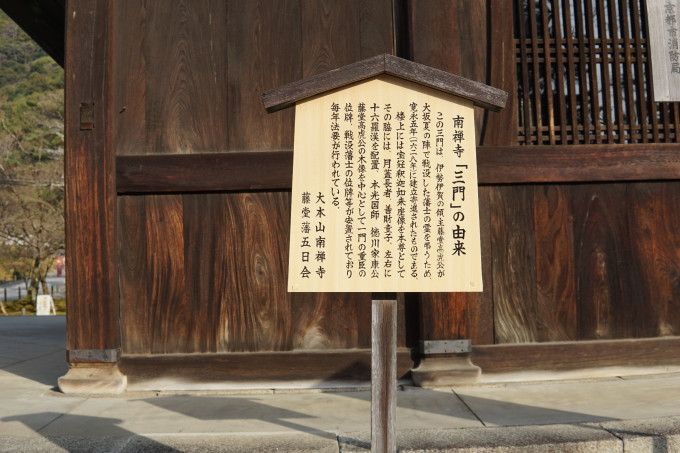 南禅寺「三門」の由来
この三門は、伊勢伊賀の領主藤堂高虎公が
大坂夏の陣で戦没した藩士の霊を弔うため、
寛永五年(一六二八年)に建立寄進されたものである。
楼上には宝冠釈迦如来座像を本尊として
その脇には、月蓋長者、善財童子、左右に
十六羅漢を配置、本光国師、徳川家康公
藤堂高虎公の木像を中心として一門の重臣の
位牌、戦没藩士の位牌等が安置されており
毎年法要が行われている。
大本山南禅寺
藤堂藩五日会
京都市消防局